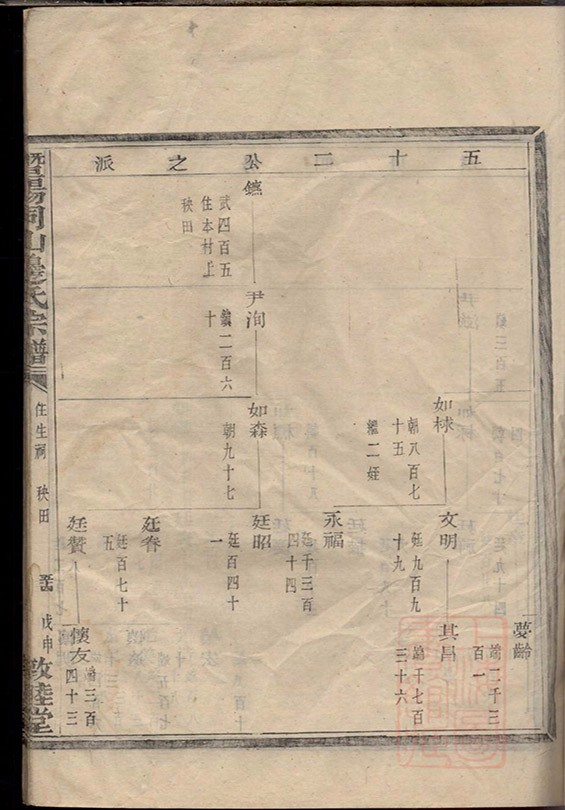 五十二公之派
鑣
武四百五
住本村上
秧田
尹洵
鑣二百六
十
如梂
朝八百七
十五
繼二姪
如森
朝九十七
文明
廷九百九
十九
永福
廷千三百
四十四
廷昭
廷百四十
一
廷眷
廷百七十
五
廷贊
夢齡
端二千三
百一
其昌
端千七百
三十六
懷友
端三百
四十三
暨陽同山邊氏宗譜
住生祠 秧田
戊申
敦睦堂